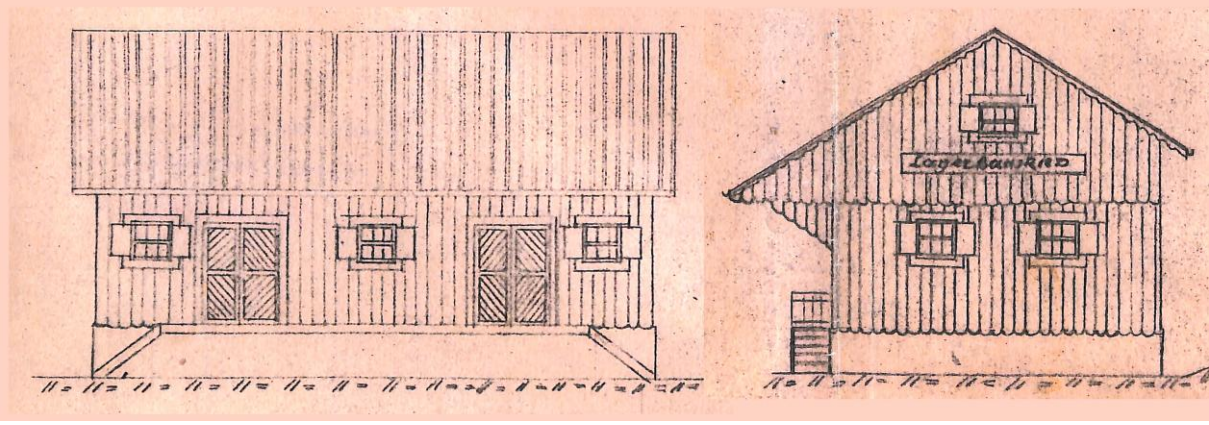 Lagerhaus Ried